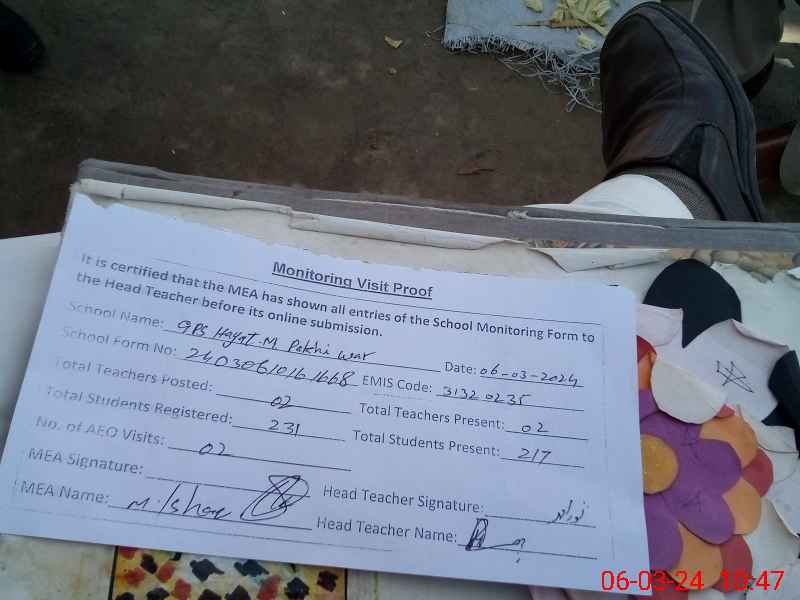 Monitoring Visit Proof
It is certified that the MEA has shown all entries of the School Monitoring Form to
the Head Teacher before its online submission.
School Name: GPS Hayat.M Pakhi war Date: 06-03-2024
School Form No: EMIS Code: 31320235
Total Teachers Posted: 02 Total Teachers Present: 02
Total Students Registered: 231 Total Students Present: 217
No. of AEO Visits: 02
MEA Signature: Head Teacher Signature:
MEA Name: Head Teacher Name:
06-03-24 10:47